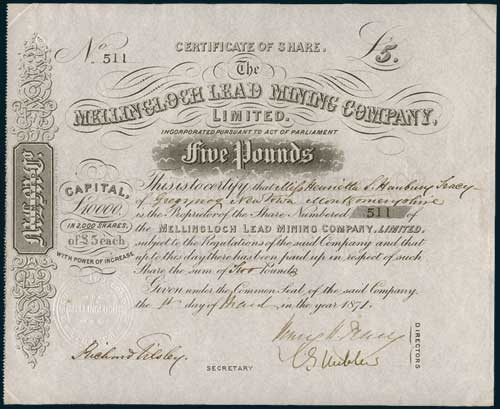 CERTIFICATE OF SHARE.
No. 511
£5.
The
MELLINGLOCH LEAD MINING COMPANY,
LIMITED.
INCORPORATED PURSUANT TO ACT OF PARLIAMENT
Five Pounds
CAPITAL,
£10000,
IN 2,000 SHARES,
of £5 each
WITH POWER OF INCREASE
This is to certify that Miss Henrietta S. Hanbury Tracy
of Newtown Montgomeryshire
is the Proprietor of the Share Numbered 511
of the MELLINGLOCH LEAD MINING COMPANY, LIMITED,
subject to the Regulations of the said Company and that
up to this day there has been paid up in respect of such
Share the sum of Two Pounds
Given under the Common Seal of the said Company
the 1st day of March in the year 1871.
DIRECTORS
Richard Tilsley
SECRETARY